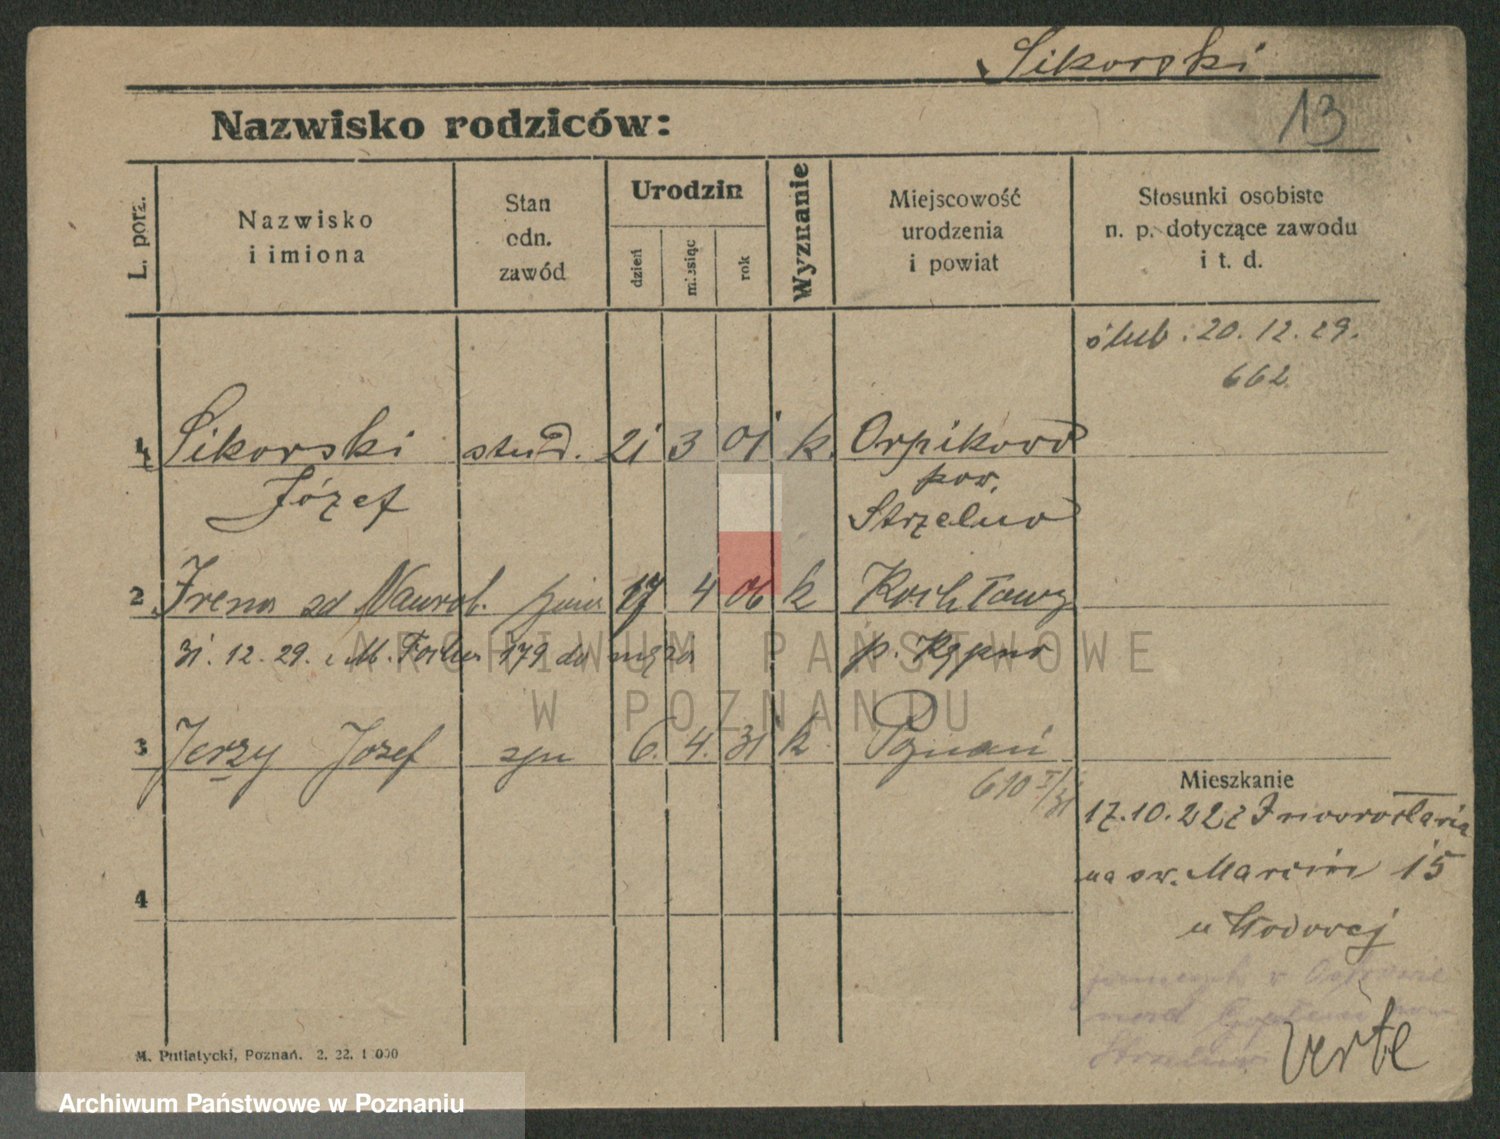 Sikorski
13
Nazwisko rodziców:
L. porz.
Nazwisko
i imiona
Stan
odn.
zawód
Urodzin
dzień
miesiąc
rok
Wyznanie
Miejscowość
urodzenia
i powiat
Stosunki osobiste
n. p. dotyczące zawodu
i t. d.
ślub. 20. 12. 29.
662
1 Sikorski stud. 21 3 01 k. Orpikowo
Józef
pow.
Strzelno
2 Irena zd Nawrot. 17 4 06 k Kochłowy
31. 12. 29. M. Focha 179 do męża p. Kępno
3 Jerzy Józef syn 6. 4. 31 k Poznań
610 I/31
Mieszkanie
17.10.22 z Inowrocławia
na św. Marcin 15
u
4
verte
M. Putiatycki, Poznań. 2. 22. 1000
ARCHIWUM PAŃSTWOWE
W POZNANIU
Archiwum Państwowe w Poznaniu